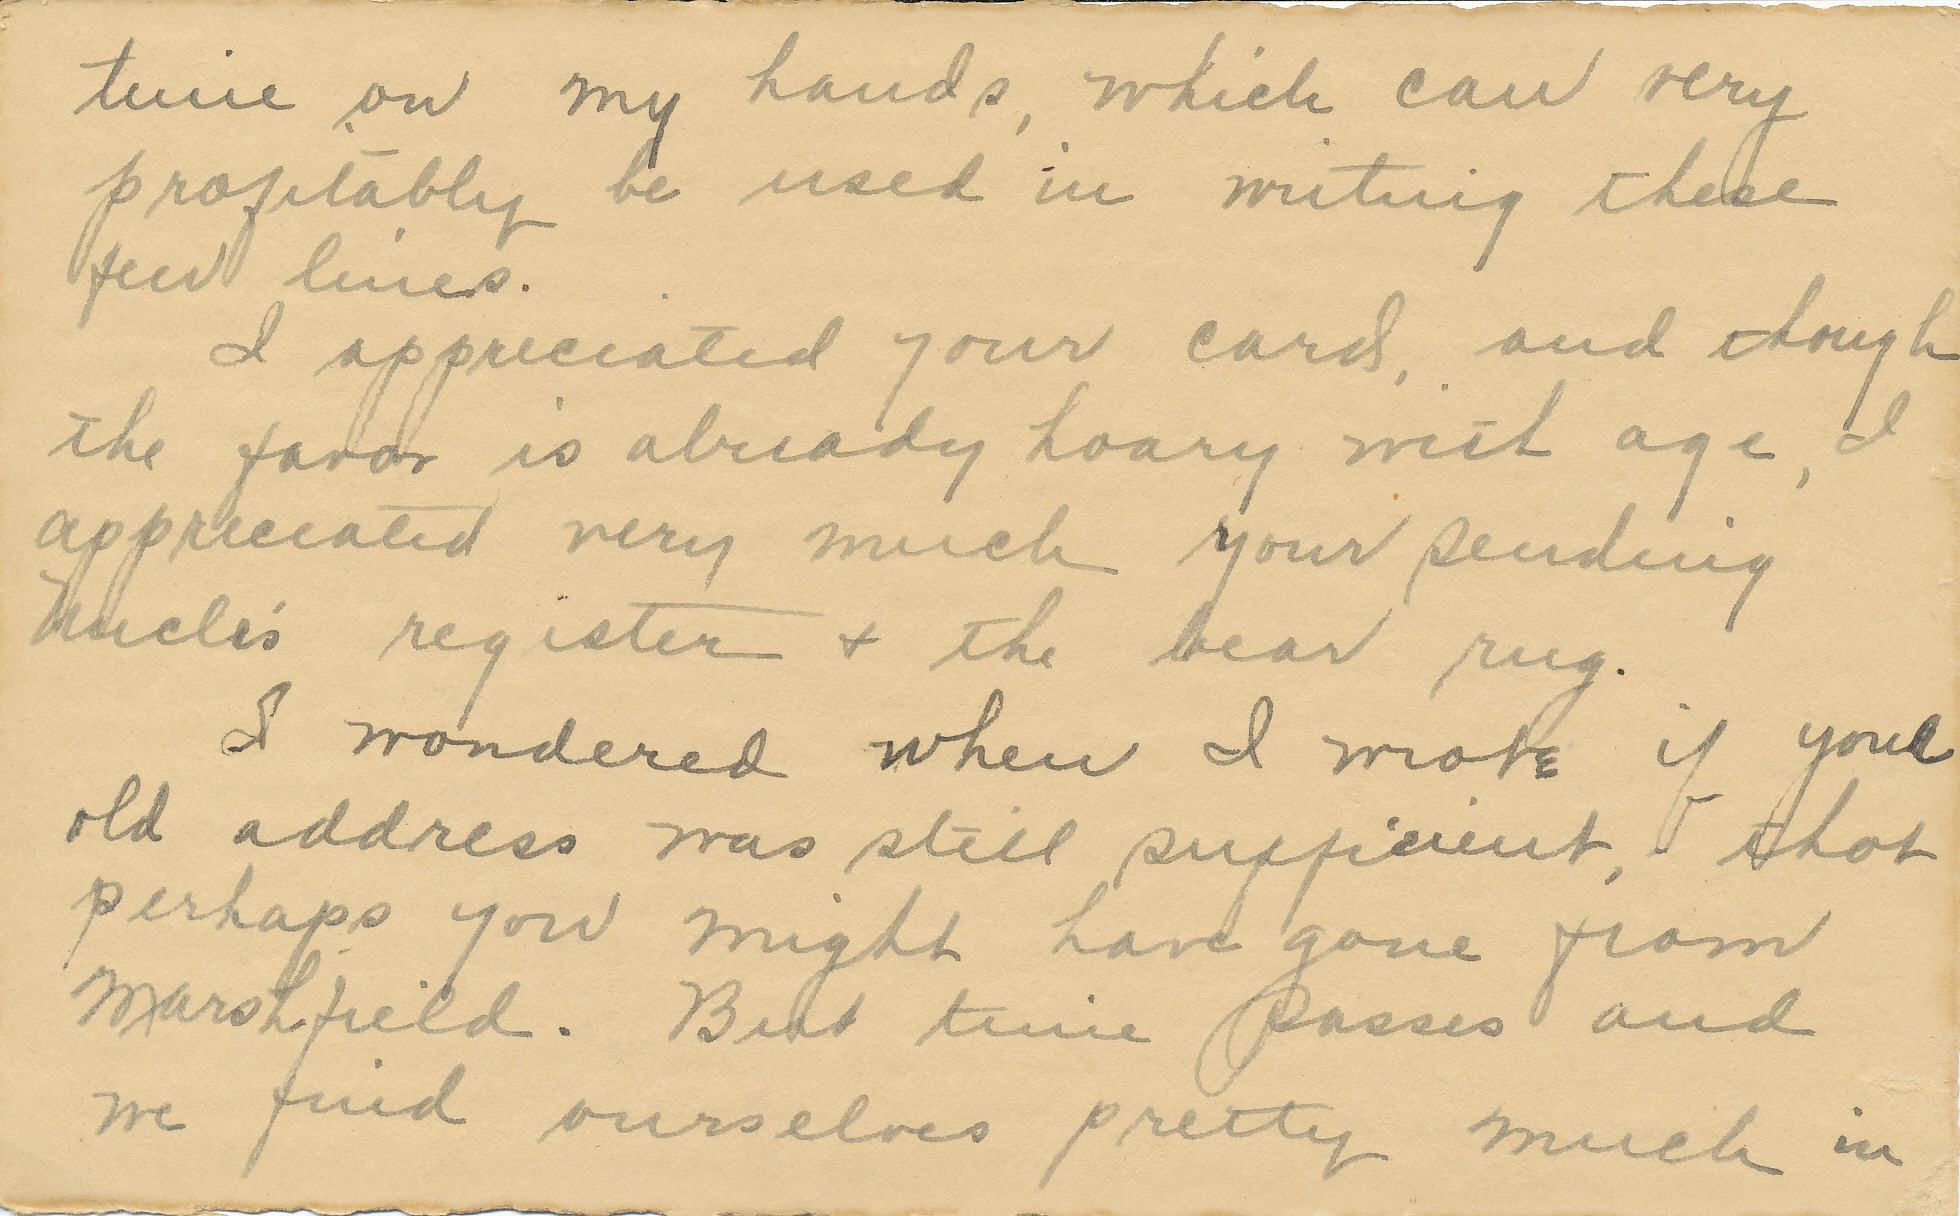 time on my hands, which can very
profitably be used in writing these
few lines.
I appreciated your card, and though
the favor is already hoary with age, I
appreciated very much your sending
Uncle's register + the bear rug.
I wondered when I wrote if your
old address was still sufficient, that
perhaps you might have gone from
Marshfield. But time passes and
we find ourselves pretty much in